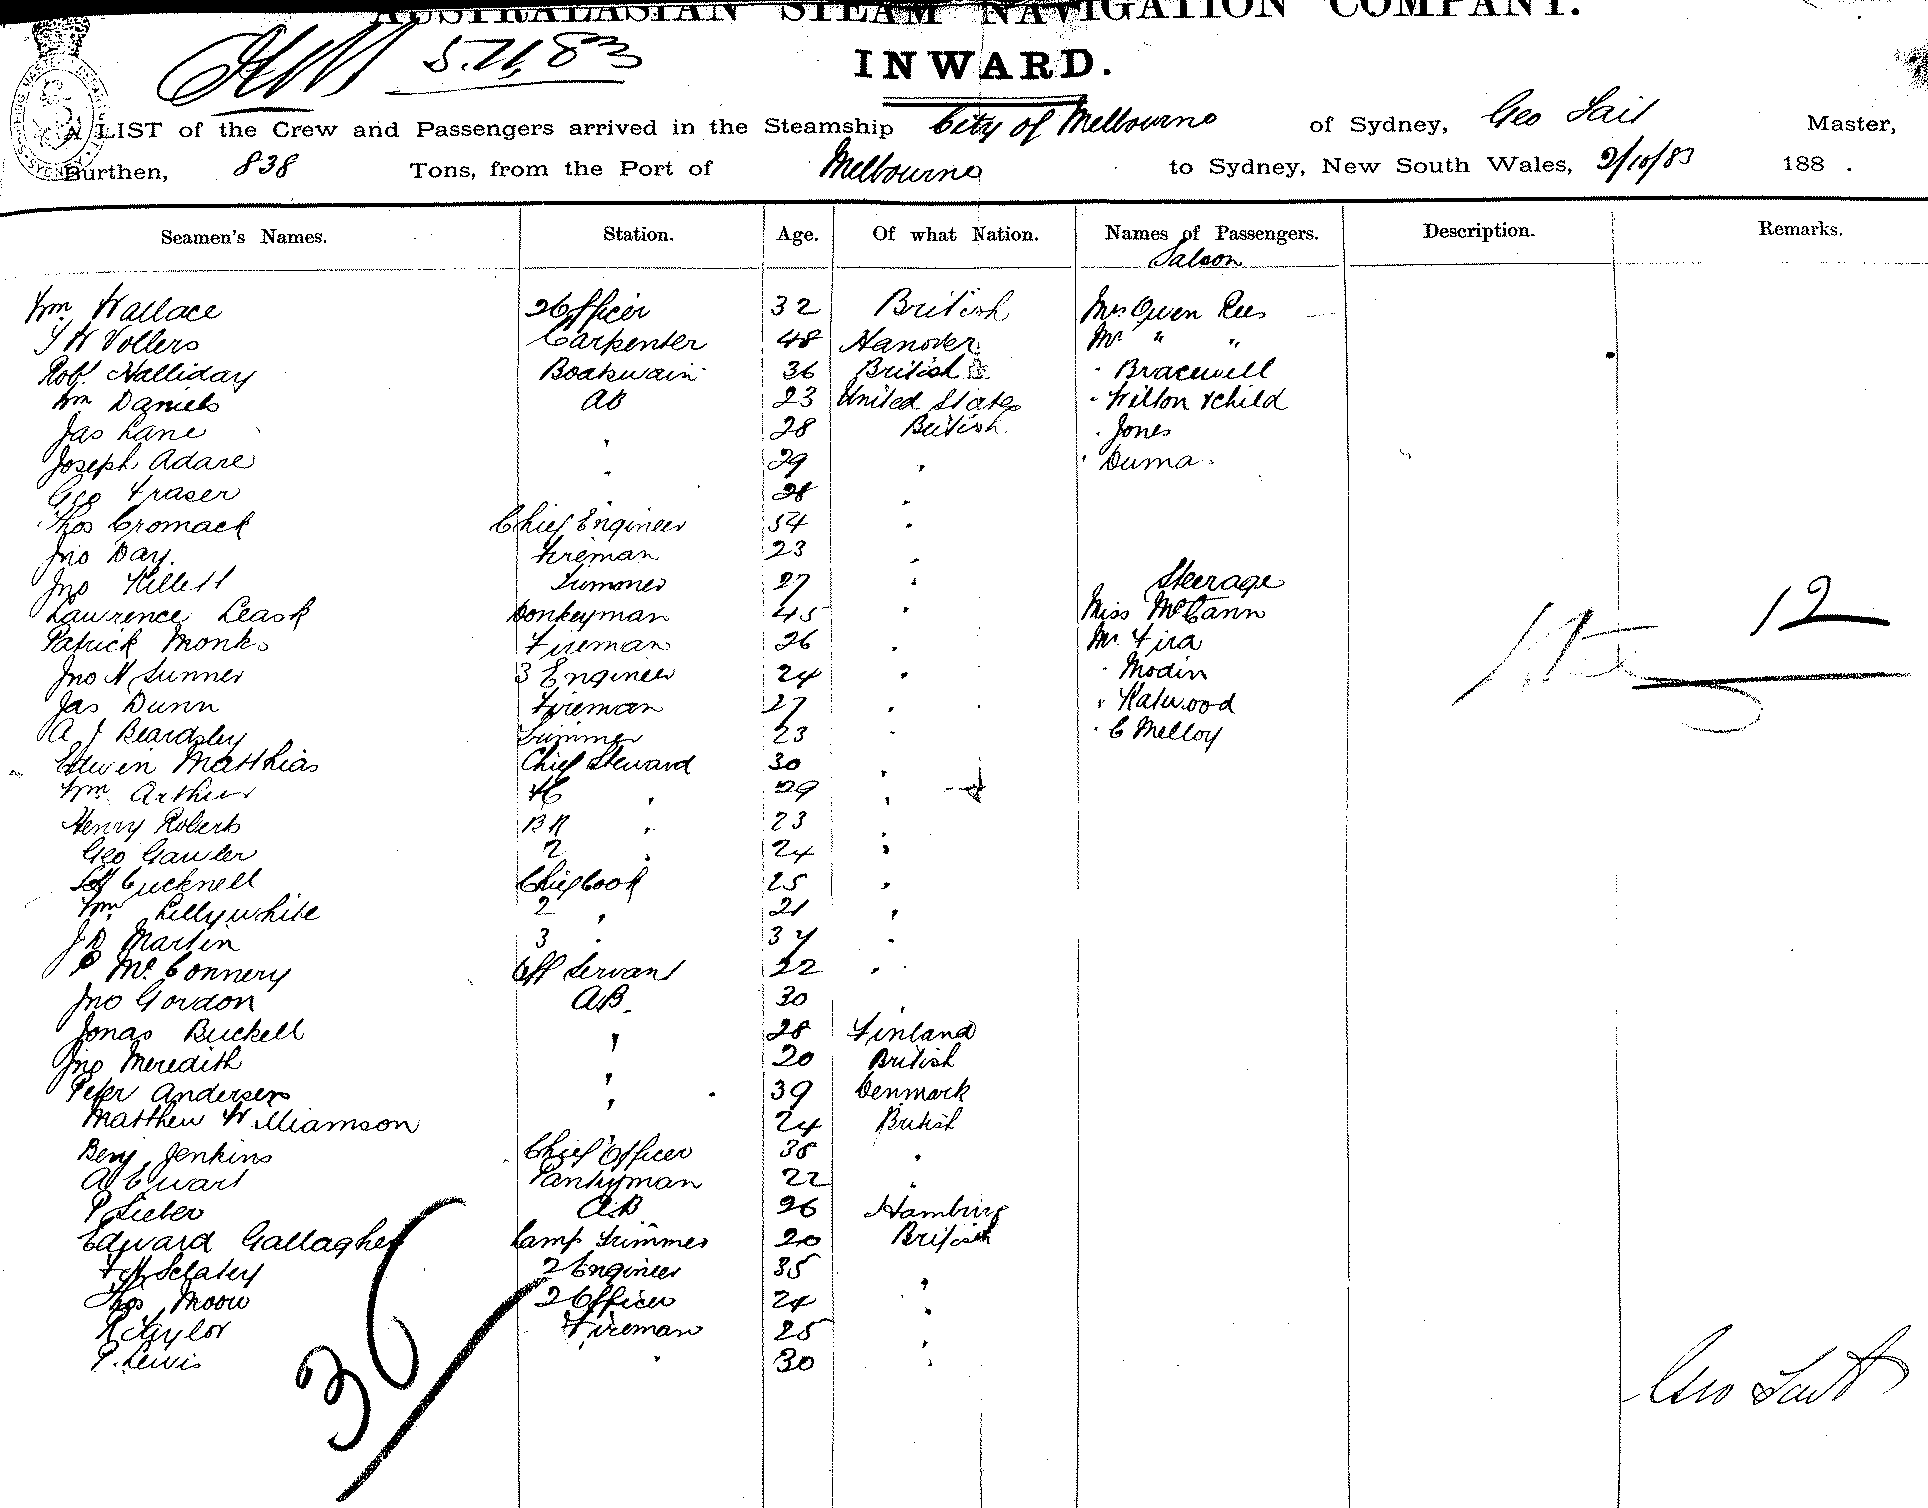 AUSTRALASIAN STEAM NAVIGATION COMPANY.
5.11.83
INWARD.
A LIST of the Crew and Passengers arrived in the Steamship City of Melbourne of Sydney, Geo Sait Master,
Burthen, 838 Tons, from the Port of Melbourne to Sydney, New South Wales, 2/10/83 188 .
Seamen's Names. Station. Age. Of what Nation. Names of Passengers. Description. Remarks.
Saloon
Wm Wallace 2 Officer 32 British Mrs Owen Rees
J W Vollers Carpenter 48 Hanover Mr " "
Robt Halliday Boatswain 36 British " Bracewell
Wm Daniels AB 23 United States " Wilton & child
Jas Lane " 28 British " Jones
Joseph Adare " 29 " " Duma
Geo Fraser " 28 "
Thos Cromack Chief Engineer 54 "
Jno Day Fireman 23 "
Jno Killett Trimmer 27 " Steerage
Lawrence Leask Donkeyman 45 " Miss McCann
12
Patrick Monks Fireman 26 " Mr Fira
Jno H Sunner 3 Engineer 24 " " Modin
Jas Dunn Fireman 27 " " Hatwood
A J Beardsley Trimmer 23 " " C Melloy
Edwin Matthias Chief Steward 30 "
Wm Arthur " 29 "
Henry Roberts BR " 23 "
Geo Gawler 2 " 24 "
Bucknell Chief Cook 25 "
Wm Lillywhite 2 " 21 "
J D Martin 3 " 37 "
P McConnery Off Servant 22 "
Jno Gordon AB 30 "
Jonas Buckell " 28 Finland
Jno Meredith " 20 British
Peter Andersen " 39 Denmark
Matthew Williamson " 24 British
Benj Jenkins Chief Officer 38 "
A Ewart Pantryman 22 "
P Sieber AB 26 Hamburg
Edward Gallagher Lamp Trimmer 20 British
Sclater 2 Engineer 35 "
Thos Moore 2 Officer 24 "
R Taylor Fireman 25 "
P. Lewis " 30 "
36
Geo Sait